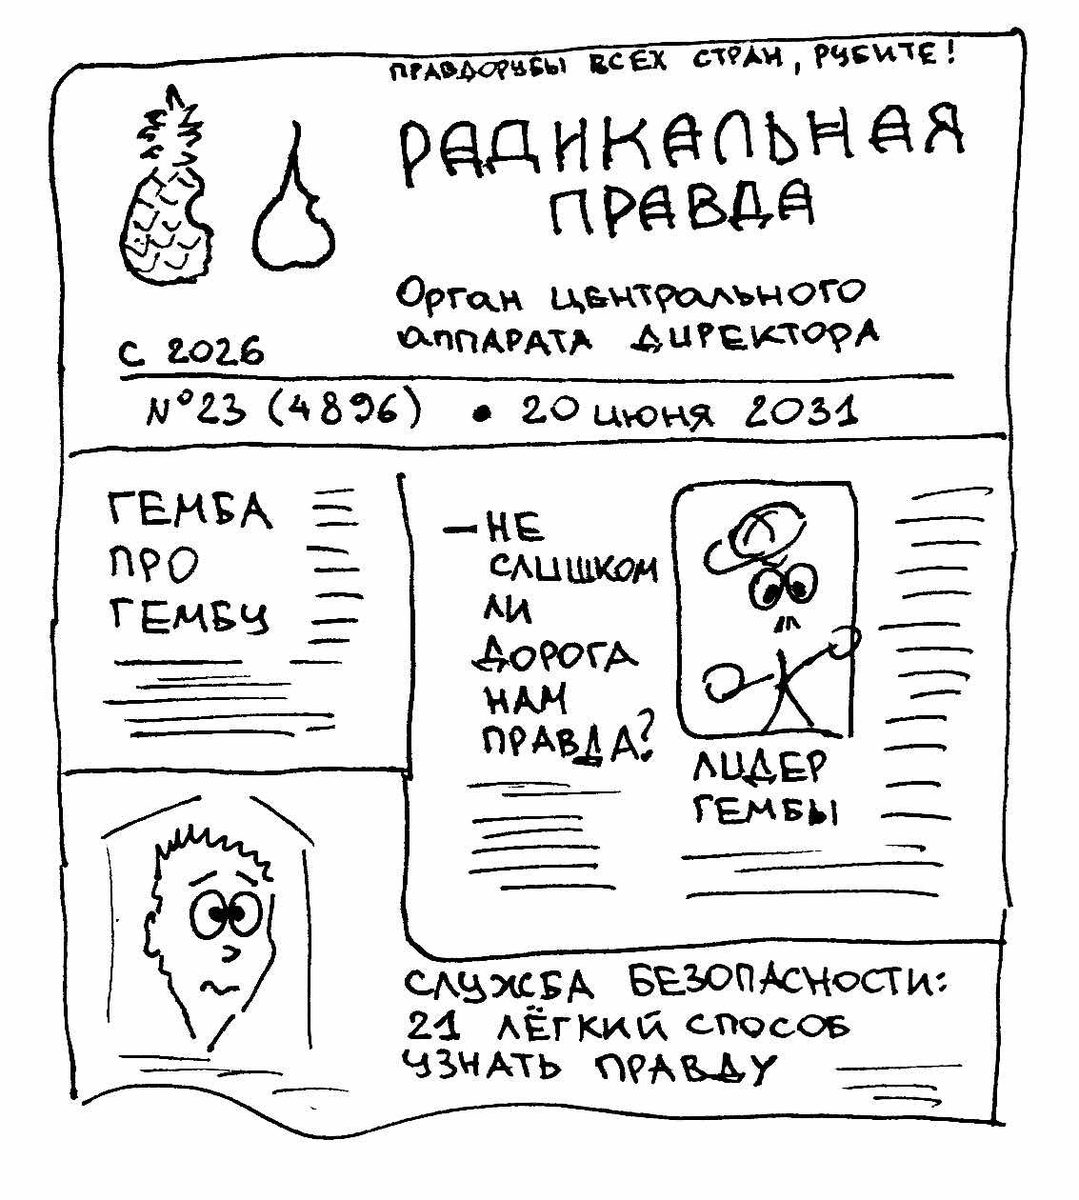 ПРАВДОРУБЫ ВСЕХ СТРАН, РУБИТЕ!
РАДИКАЛЬНАЯ
ПРАВДА
Орган центрального
аппарата директора
с 2026
№23 (4896) • 20 июня 2031
ГЕМБА
ПРО
ГЕМБУ
— НЕ
СЛИШКОМ
ЛИ
ДОРОГА
НАМ
ПРАВДА?
ЛИДЕР
ГЕМБЫ
СЛУЖБА БЕЗОПАСНОСТИ:
21 ЛЁГКИЙ СПОСОБ
УЗНАТЬ ПРАВДУ